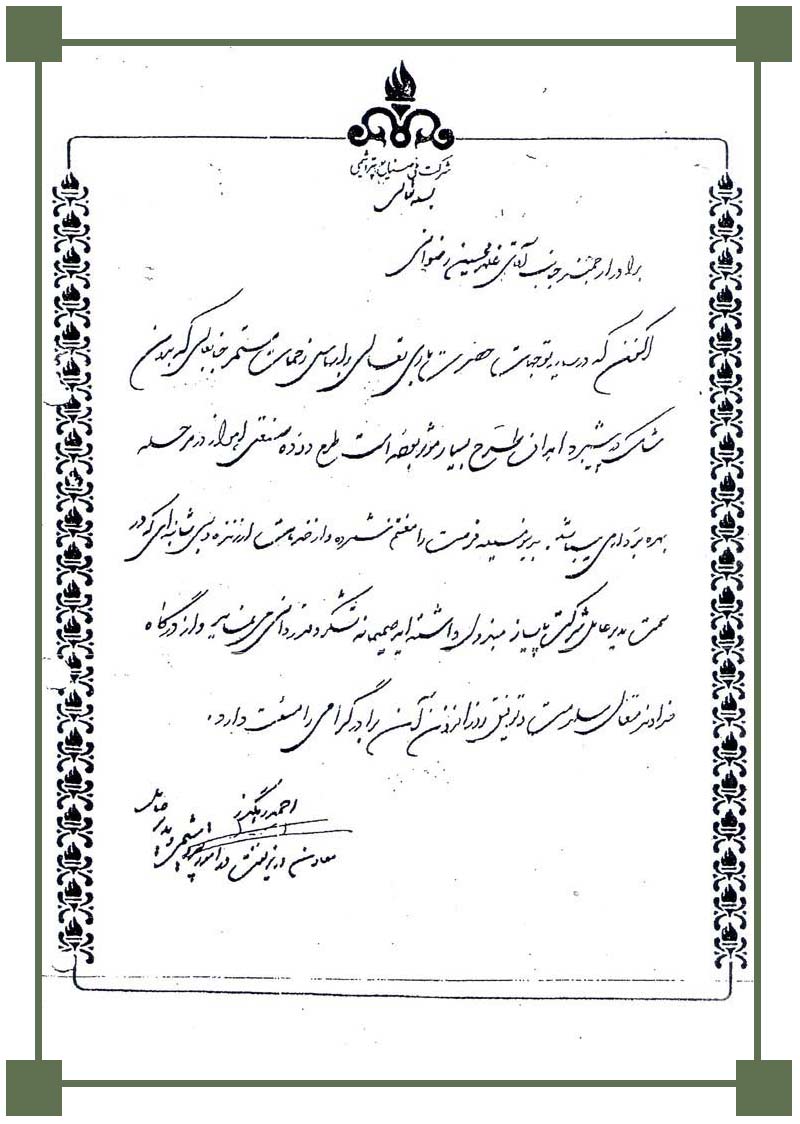 شرکت ملی صنایع پتروشیمی
بسمه تعالی
برادر ارجمند جناب آقای غلامحسین رضوانی
اکنون که در سایه توجهات حضرت باری تعالی و براساس زحمات مستمر جنابعالی که بدون
شک در پیشبرد اهداف طرح بسیار موثر بوده است طرح دوده صنعتی اهواز در مرحله
بهره برداری میباشد. بدینوسیله فرصت را مغتنم شمرده و از خدمات ارزنده و بی شائبه ای که در
سمت مدیر عامل شرکت مبذول داشته اید صمیمانه تشکر و قدردانی می نماید و از درگاه
خداوند متعال سلامت و توفیق روزافزون آن برادر گرامی را مسئلت دارد.
احمد رهگذر
معاون وزیر نفت در امور پتروشیمی و مدیر عامل